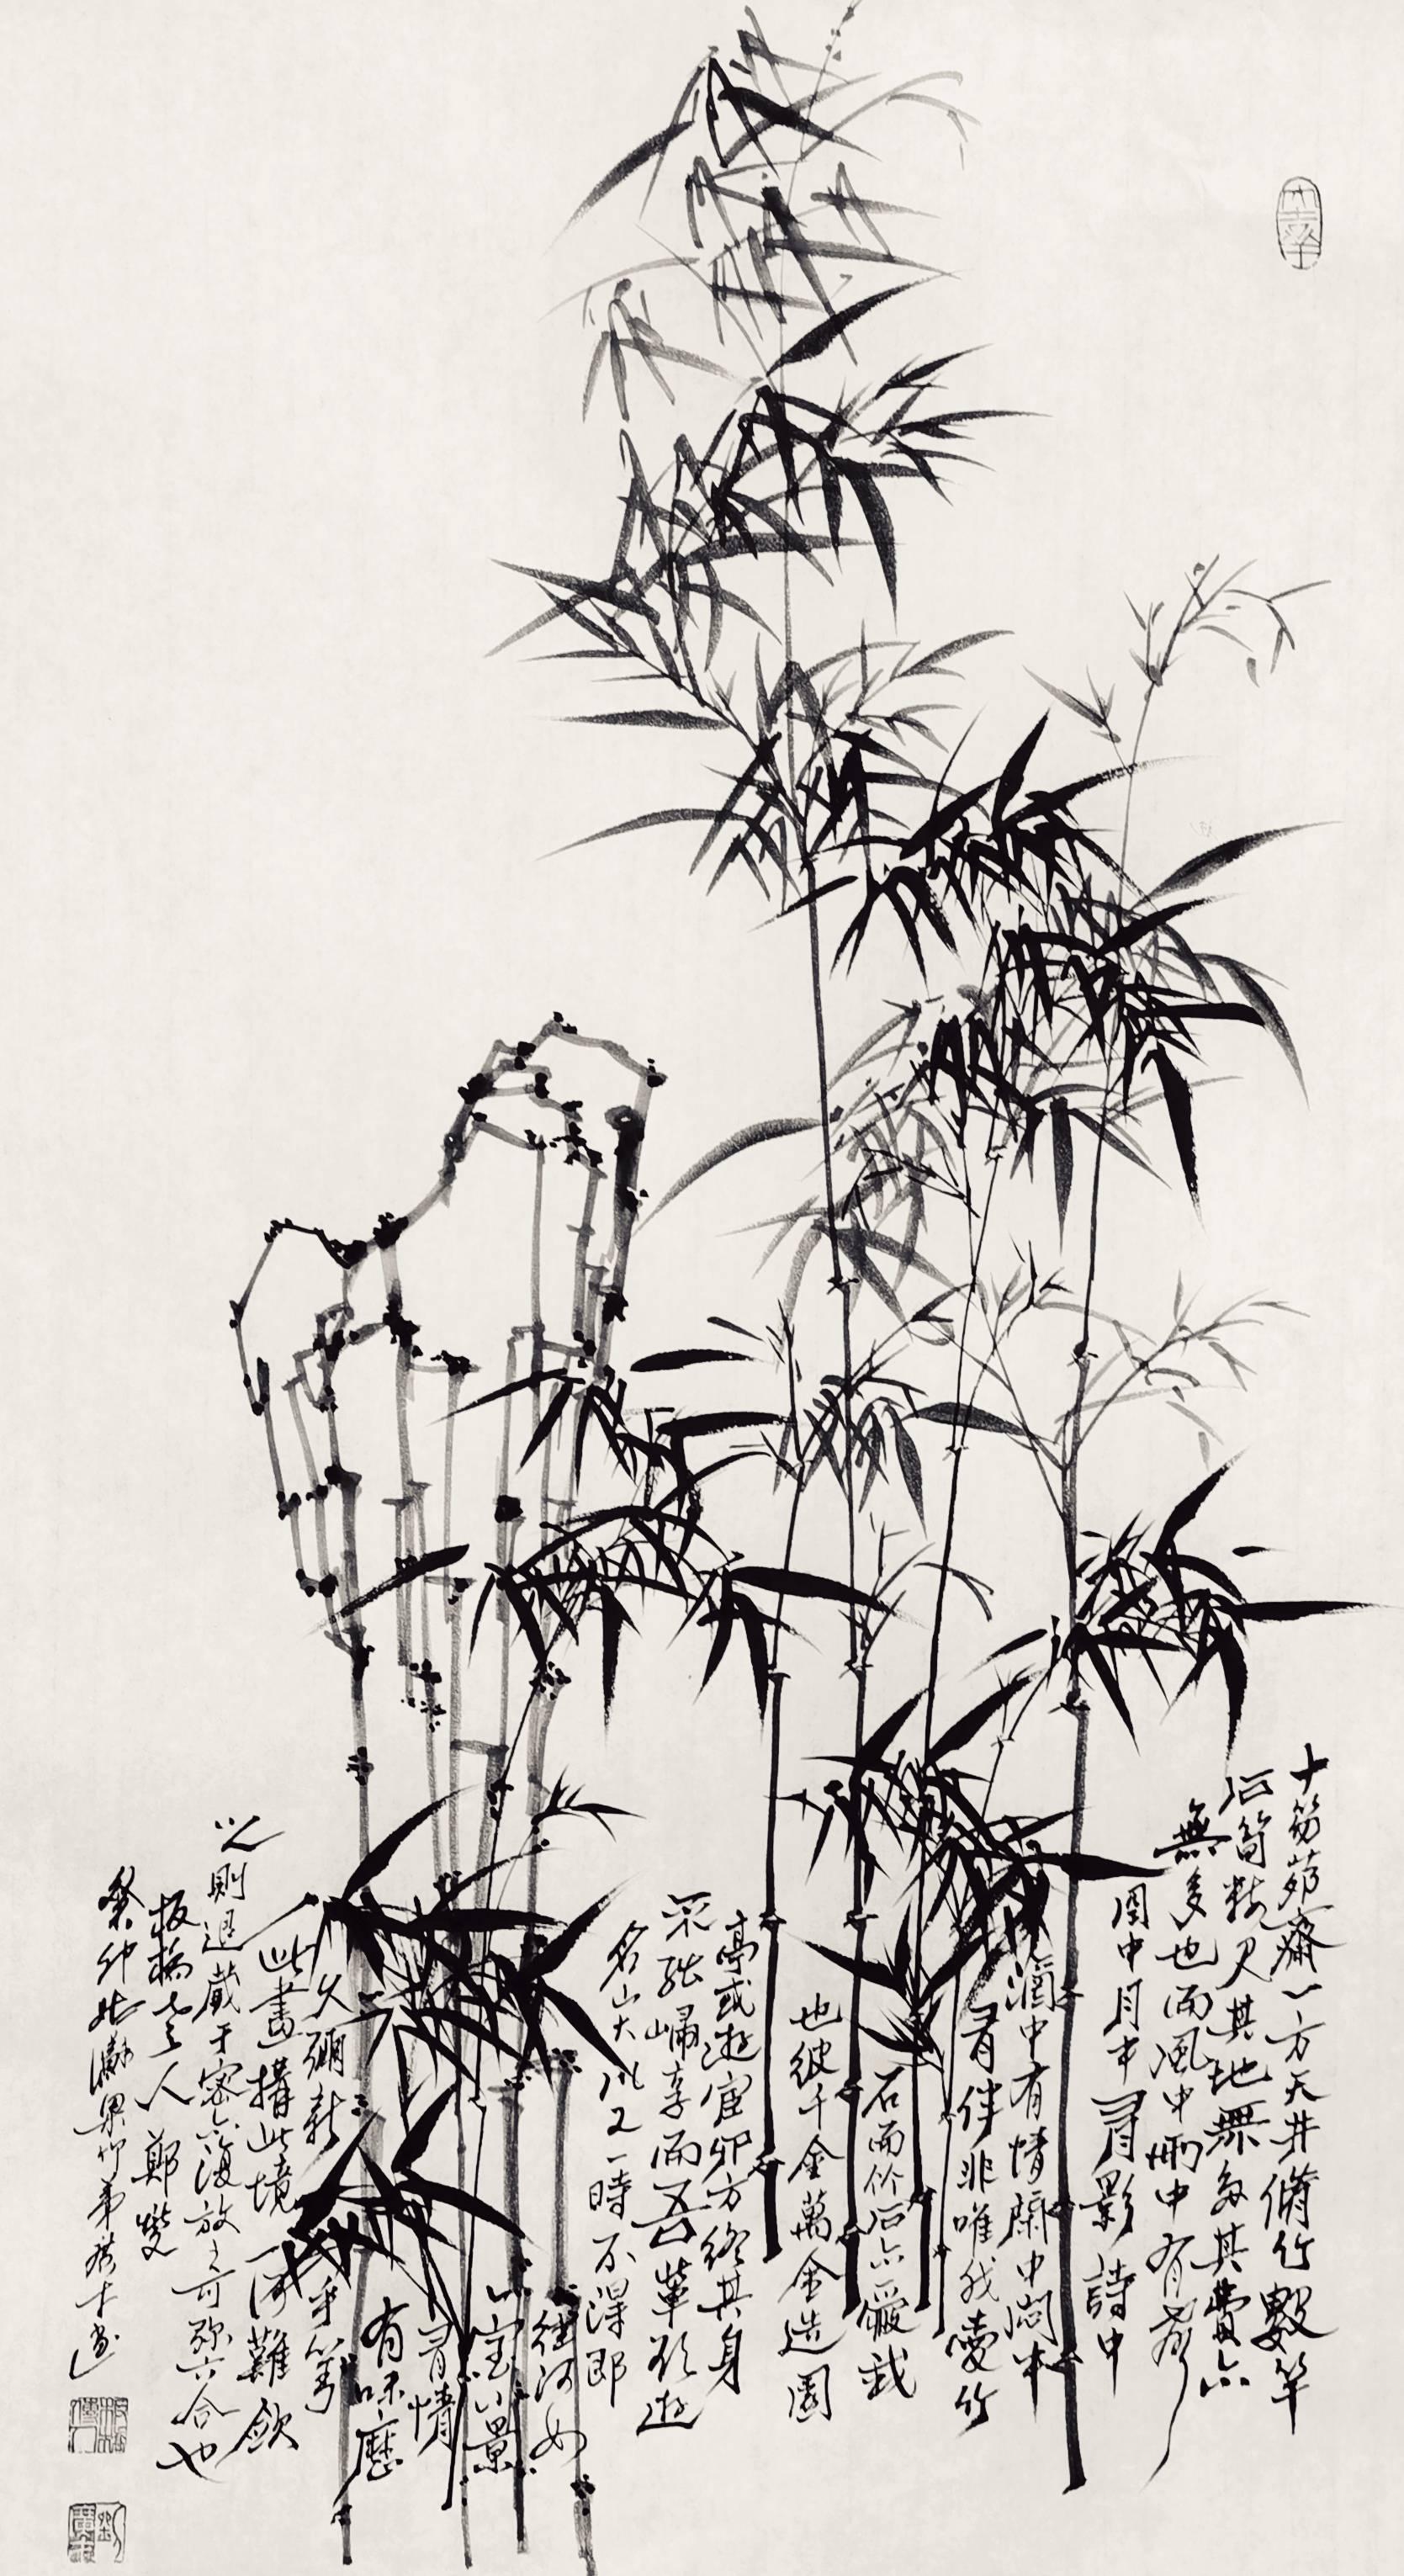 十笏茆齋一方天井脩竹數竿
石筍數尺其地無多其費亦
無多也而風中雨中有聲
日中月中有影詩中
酒中有情閒中悶中
有伴非唯我愛竹
石而竹石亦愛我
也彼千金萬金造園
亭或遊宦四方終其身
不能歸享而吾輩欲遊
名山大川又一時不得即
往何如
一室小景
有情
有味歷
久彌新乎對
此畫構此境何難斂
之則退藏于密亦復放之可弥六合也
板橋老人鄭燮
癸卯